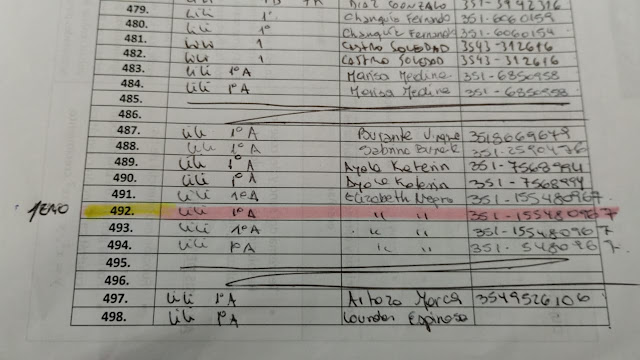 479. Lili 1º A Diaz Gonzalo 351-3942316
480. Lili 1º Changuiz Fernando 351-6060159
481. Lili 1º Changuiz Fernando 351-6060154
482. Lili 1 Castro SOLEDAD 3543-312616
483. Lili 1 Castro SOLEDAD 3543-312616
484. Lili 1º A Marisa Medina 351-6850958
Lili 1º A Marisa Medina 351-6850958
485.
486.
487. Lili 1º A 3518669679
488. Lili 1º A Sabrina 351-2590436
489. Lili 1º A Ayala Katerin 351-7568994
490. Lili 1º A Ayala Katerin 351-7568994
491. Lili 1º A Elizabeth Negro 351-155480967
492. Lili 1º A " " 351-155480967
493. Lili 1º A " " 351-155480967
494. Lili 1º A " " 351-5480967
495.
496.
497. Lili 1º A 3549526106
498. Lili 1º A Lourdes Espinosa